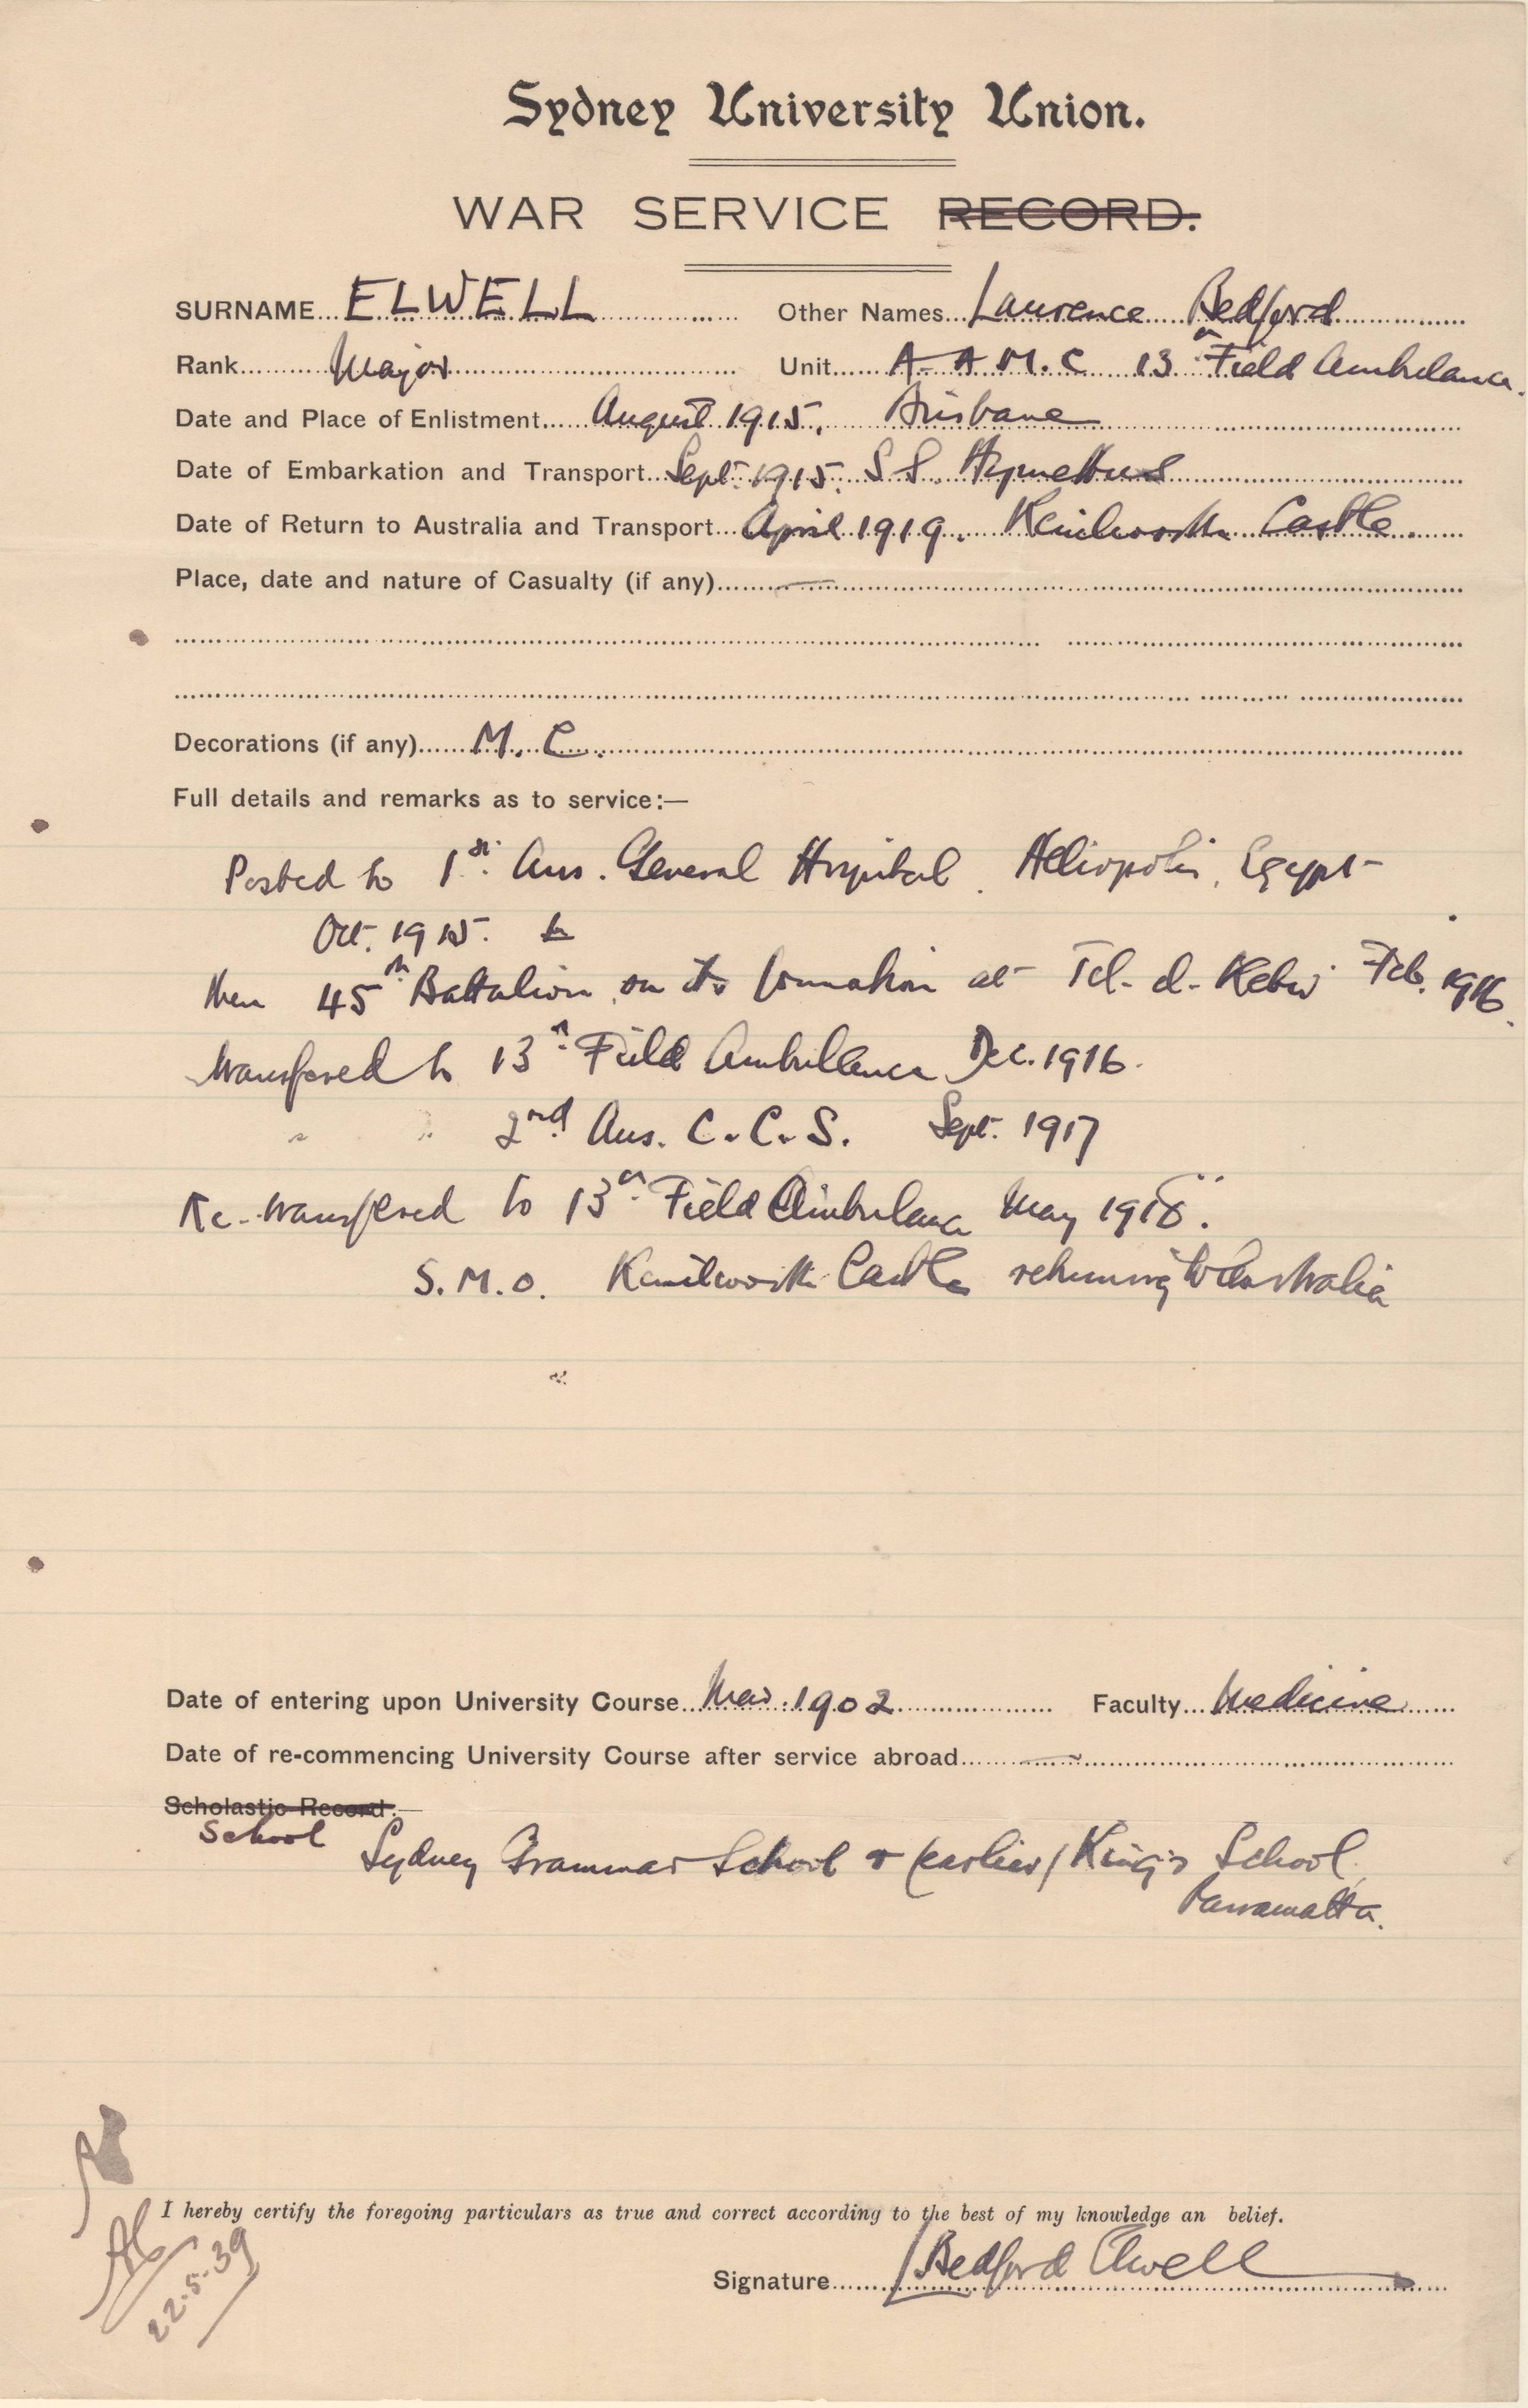 Sydney University Union.
WAR SERVICE RECORD.
SURNAME... ELWELL ... Other Names... Laurence Bedford
Rank... Major ... Unit... A.A.M.C 13th Field Ambulance.
Date and Place of Enlistment... August 1915. Brisbane
Date of Embarkation and Transport... Sept. 1915. S.S. Hymettus
Date of Return to Australia and Transport... April 1919. Kenilworth Castle.
Place, date and nature of Casualty (if any)... —
Decorations (if any)... M.C.
Full details and remarks as to service:—
Posted to 1st. Aus. General Hospital. Heliopolis, Egypt
Oct. 1915. to
then 45th Battalion on its formation at Tel-el-Kebir Feb. 1916.
transfered to 13th Field Ambulance Dec. 1916.
" " 2nd Aus. C.C.S. Sept. 1917
Re-transfered to 13th Field Ambulance May 1918.
S.M.O. Kenilworth Castle returning to Australia
Date of entering upon University Course... Mar. 1902 ... Faculty... Medicine
Date of re-commencing University Course after service abroad... —
Scholastic Record.—
School
Sydney Grammar School & (earlier) King's School,
Parramatta.
I hereby certify the foregoing particulars as true and correct according to the best of my knowledge an belief.
Signature... Bedford Elwell
22.5.39